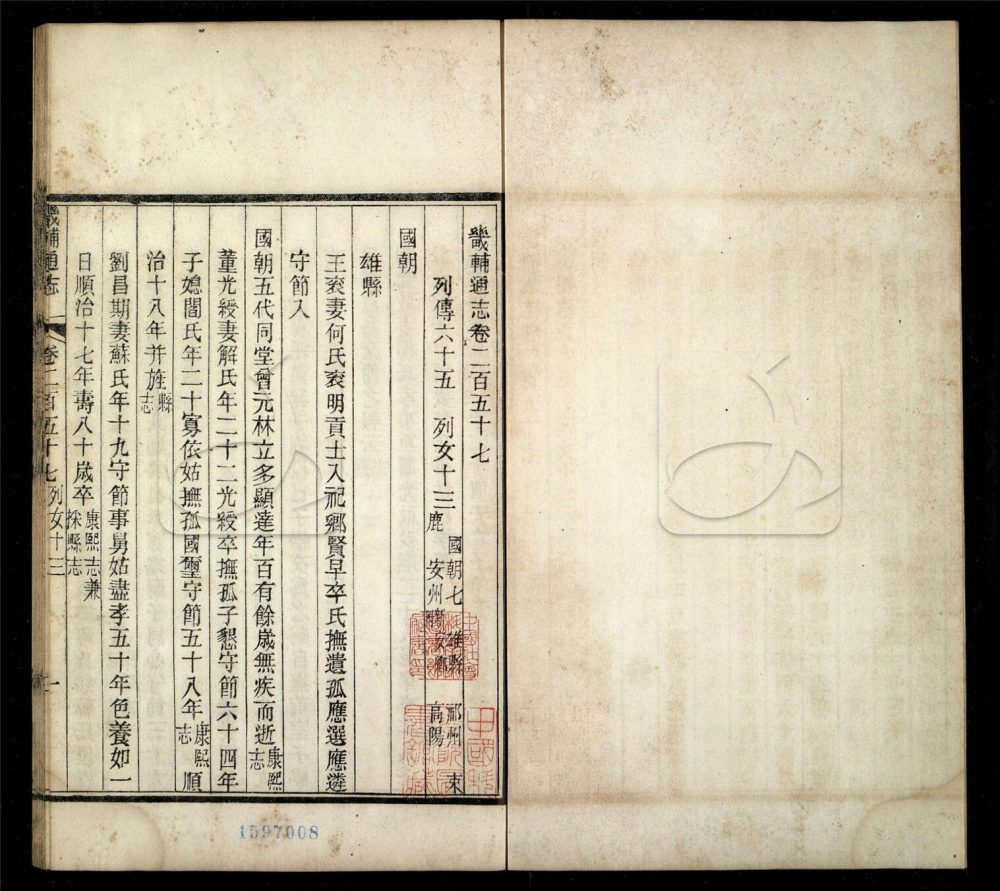 畿輔通志卷二百五十七
列傳六十五 列女十三 國朝七 雄縣 祁州 束
鹿 安州 高陽
國朝
雄縣
王衮妻何氏衮明貢士入祀鄉賢早卒氏撫遺孤應選應遴
守節入
國朝五代同堂曾元林立多顯達年百有餘歲無疾而逝康熙志
董光綬妻解氏年二十二光綬卒撫孤子懇守節六十四年
子媳閻氏年二十寡依姑撫孤國璽守節五十八年康熙志順
治十八年并旌縣志
劉昌期妻蘇氏年十九守節事舅姑盡孝五十年色養如一
日順治十七年壽八十歲卒康熙志兼採縣志
畿輔通志 卷二百五十七 列女十三 一
1597008